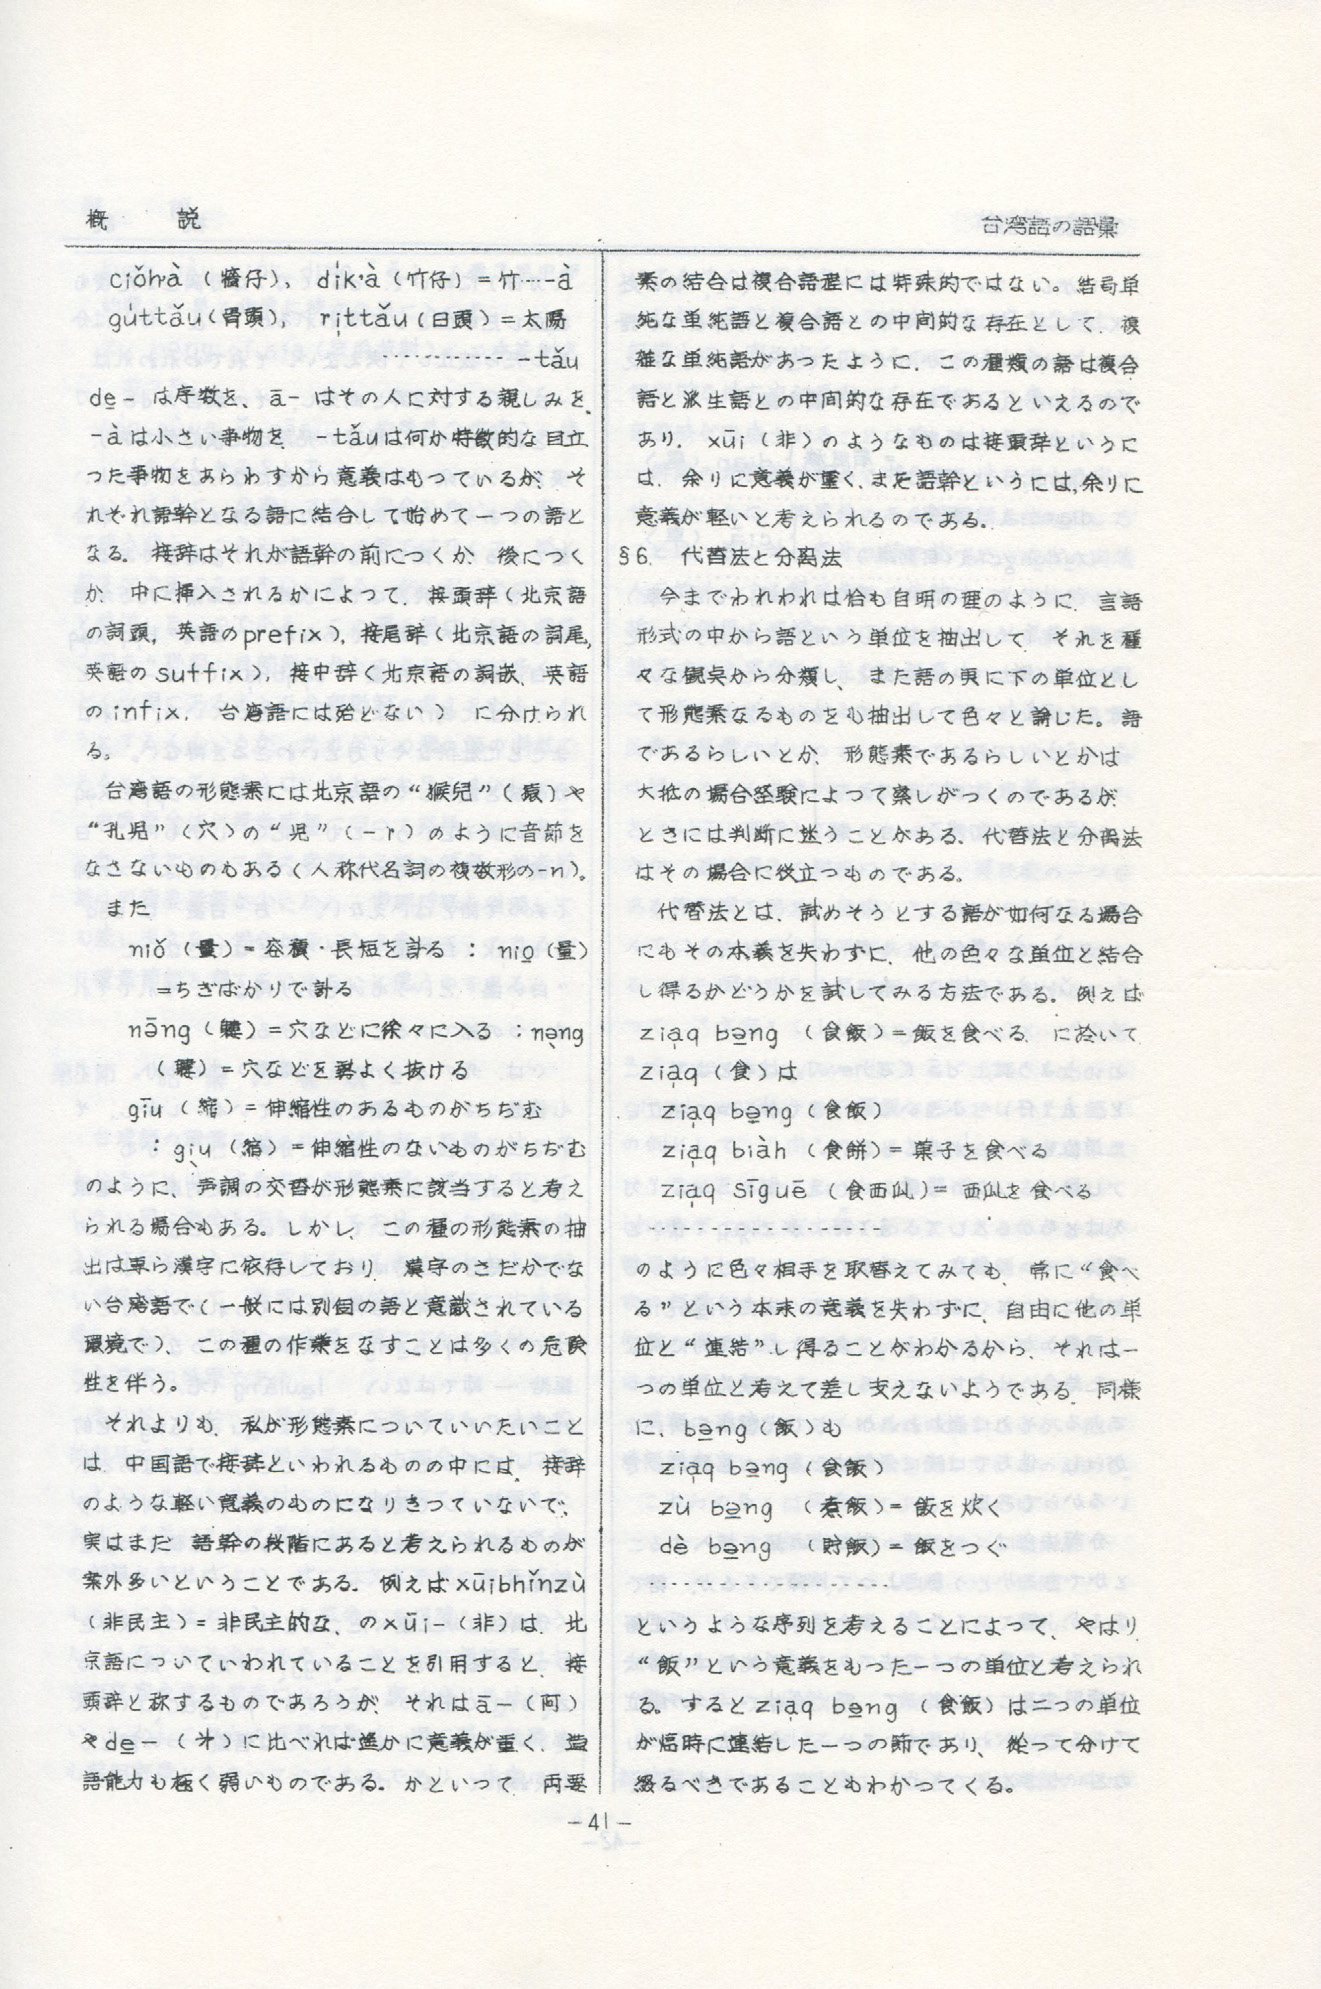 概　説
台湾語の語彙
ciǒh·à（檣仔）, dík·à（竹仔）＝竹…-à
gúttǎu（骨頭）, rịttǎu（日頭）＝太陽
…………-tǎu
de̲- は序数を、ā- はその人に対する親しみを、
-à は小さい事物を、 -tǎu は何か特徴的な目立
った事物をあらわすから意義はもっているが、そ
れぞれ語幹となる語に結合して始めて一つの語と
なる。接辞はそれが語幹の前につくか、後につく
か、中に挿入されるかによって、接頭辞（北京語
の詞頭，英語のprefix），接尾辞（北京語の詞尾，
英語のsuffix），接中辞（北京語の詞嵌、英語
のinfix． 台湾語には殆どない） に分けられ
る。
台湾語の形態素には北京語の“猴兒”（猿）や
“孔児”（穴）の“児”（-r）のように音節を
なさないものもある（人称代名詞の複数形の-n）。
また
niǒ（量）＝容積・長短を計る ： nio̲（量）
＝ちぎばかりで計る
nāng（軁）＝穴などに徐々に入る ：nạng
（軁）＝穴などを再よく抜ける
gīu（縮）＝伸縮性のあるものがちぢむ
：gịu（縮）＝伸縮性のないものがちぢむ
のように、声調の交替が形態素に該当すると考え
られる場合もある。しかし、この種の形態素の抽
出は専ら漢字に依存しており、漢字のさだかでな
い台湾語で（一般には別個の語と意識されている
環境で）、この種の作業をなすことは多くの危険
性を伴う。
それよりも、私が形態素についていいたいこと
は、中国語で接辞といわれるものの中には、接辞
のような軽い意義のものになりきっていないで、
実はまだ 語幹の段階にあると考えられるものが
案外多いということである。例えばxūibhǐnzù
（非民主）＝非民主的な、のxūi-（非）は、北
京語についていわれていることを引用すると、接
頭辞と称するものであろうが、それはā-（阿）
やde̲-（才）に比べれば遙かに意義が重く、造
語能力も極く弱いものである。かといって、両要
素の結合は複合語程には特殊的ではない。結局単
純な単純語と複合語との中間的な存在として、複
雑な単純語があったように、この種類の語は複合
語と派生語との中間的な存在であるといえるので
あり、xūi（非）のようなものは接頭辞というに
は、余りに意義が重く、また語幹というには、余りに
意義が軽いと考えられるのである。
§6．代替法と分离法
今までわれわれは恰も自明の理のように、言語
形式の中から語という単位を抽出して、それを種
々な観点から分類し、また語の更に下の単位とし
て形態素なるものをも抽出して色々と論じた。語
であるらしいとか、形態素であるらしいとかは
大抵の場合経験によって察しがつくのであるが、
ときには判断に迷うことがある。代替法と分离法
はその場合に役立つものである。
代替法とは、試めそうとする語が如何なる場合
にもその本義を失わずに、他の色々な単位と結合
し得るかどうかを試してみる方法である。例えば
ziạq be̲ng（食飯）＝飯を食べる、に於いて
ziạq（食）は
ziạq be̲ng（食飯）
ziạq biàh（食餅）＝菓子を食べる
ziạq sīguē（食西瓜）＝西瓜を食べる
…………………
のように色々相手を取替えてみても、常に“食べ
る”という本来の意義を失わずに、自由に他の単
位と“連結”し得ることがわかるから、それは一
つの単位と考えて差し支えないようである。同様
に、be̲ng（飯）も
ziạq be̲ng（食飯）
zù be̲ng（煮飯）＝飯を炊く
dè be̲ng （貯飯）＝飯をつぐ
…………………
というような序列を考えることによって、やはり
“飯”という意義をもった一つの単位と考えられ
る。するとziạq be̲ng（食飯）は二つの単位
が臨時に連結した一つの節であり、従って分けて
綴るべきであることもわかってくる。
－41－